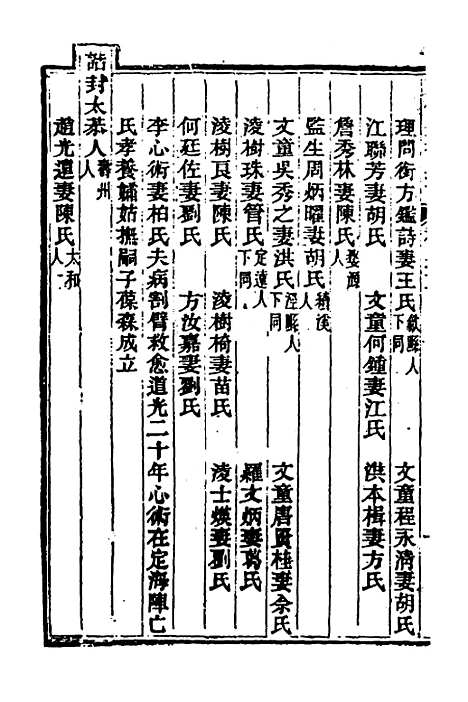 理問銜方鑑詩妻王氏歙縣人下同　文童程永濤妻胡氏
江聯芳妻胡氏　文童何鍾妻江氏　洪本楫妻方氏
詹秀林妻陳氏婺源人
監生周炳曜妻胡氏績溪人
文童吳秀之妻洪氏涇縣人下同　文童唐貢桂妻佘氏
淩樹珠妻管氏定遠人下同　羅文炳妻葛氏
淩樹艮妻陳氏　淩樹椅妻苗氏　淩士煐妻劉氏
何廷佐妻劉氏　方汝嘉妻劉氏
李心術妻柏氏夫病割臂救愈道光二十年心術在定海陣亡
氏孝養孀姑撫嗣子葆森成立
誥封太恭人壽州人
趙光遣妻陳氏太和人